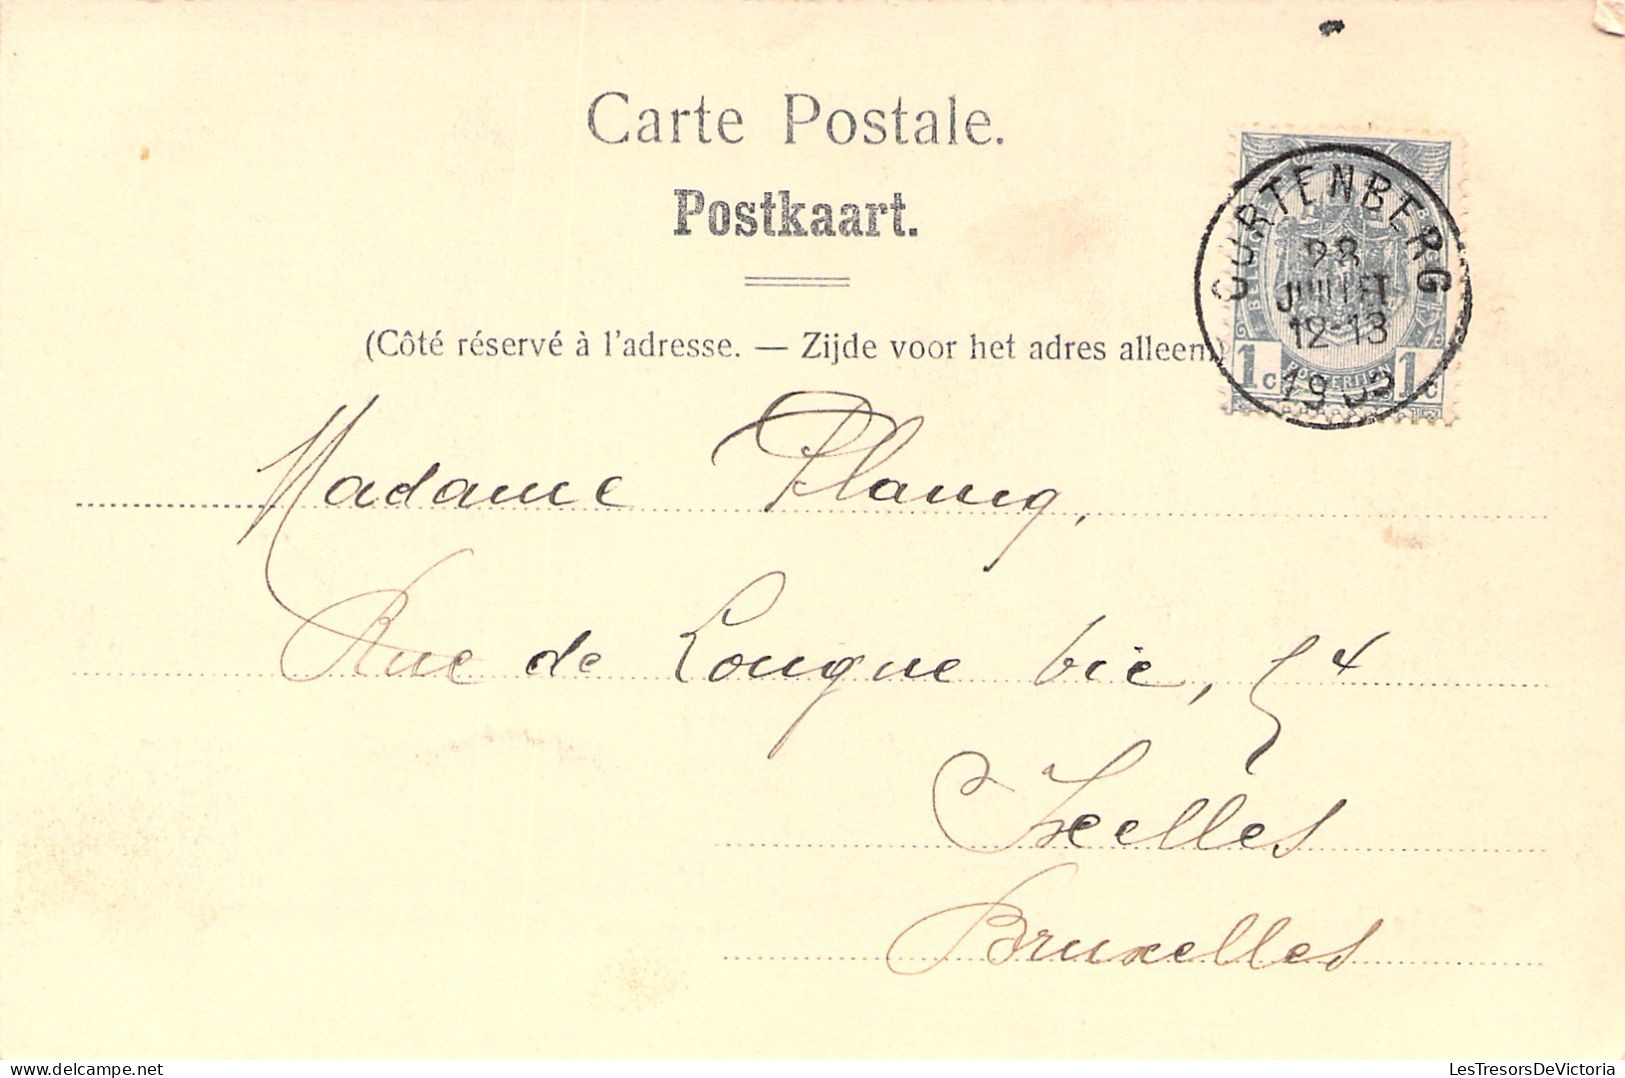 Carte Postale.
Postkaart.
(Côté réservé à l'adresse. — Zijde voor het adres alleen
CORTENBERG
28
JUILLET
12-13
1 c 1 c
Madame
Rue de Longue vie, 54
Ixelles
Bruxelles
LesTresorsDeVictoria